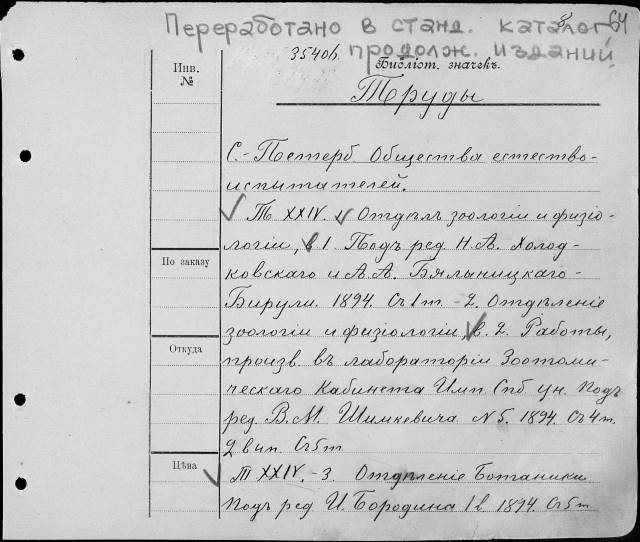 Переработано в станд. каталог 64
3540h продолж. изданий.
Инв. №
Библіот. значекъ.
Труды
С.-Петерб. Общества естество-
испытателей.
Т XXIV. Отдѣл. зоологіи и физіо-
логіи, в 1. Подъ ред. Н. А. Холод-
По заказу
ковскаго и А. А. Бялыницкаго-
Бирули. 1894. Съ 1 т. - 2. Отдѣленіе
зоологіи и физіологіи, в. 2. Работы,
Откуда
произв. въ лабораторіи Зоотоми-
ческаго Кабинета Имп. Спб. ун. Подъ
ред. В. М. Шимкевича N 5. 1894. Съ 4 т.
2 вып. Съ 5 т
Цѣна
Т XXIV. - 3. Отдѣленіе Ботаники
Подъ ред И. Бородина 1 в. 1894. Съ 5 т